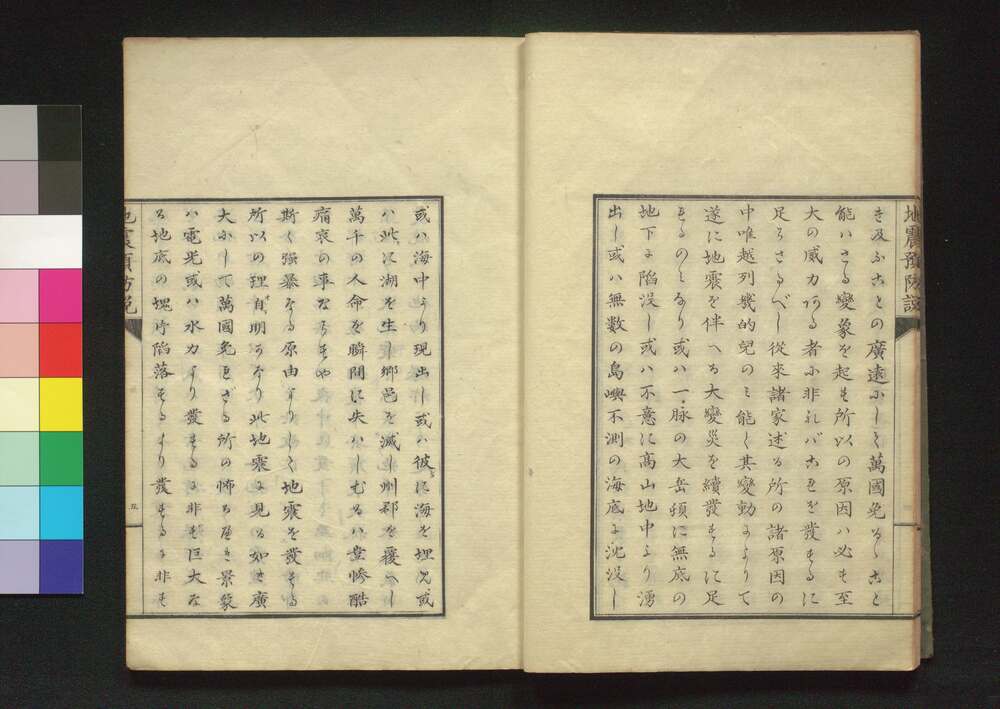 地震預防説
き及ふことの廣遠にして萬國免るゝこと
能ハさる變象を起す所以の原因ハ必す至
大の威力ある者に非れバこれを發するに
足らさるべし從來諸家述る所の諸原因の
中唯越列幾的兒のミ能く其變動によりて
遂に地震を伴へる大變災を續發するに足
るのミなり或ハ一脉の大岳頓に無底の
地下に陷没し或ハ不意に髙山地中より湧
出し或ハ無數の島嶼不測の海底に沈没し
或ハ海中より現出し或ハ彼に海を埋め或
ハ此に湖を生し郷邑を滅し州郡を覆へし
萬千の人命を瞬間に失ハしむるハ豈惨酷
痛哀の事ならすや
斯く强暴なる原由よりして地震を發する
所以の理自明かなり此地震に見る如き廣
大にして萬國免れざる所の怖るべき景象
ハ電光或ハ水力より發するに非す巨大な
る地底の塊片陷落するより發するに非す
地震預防説
五